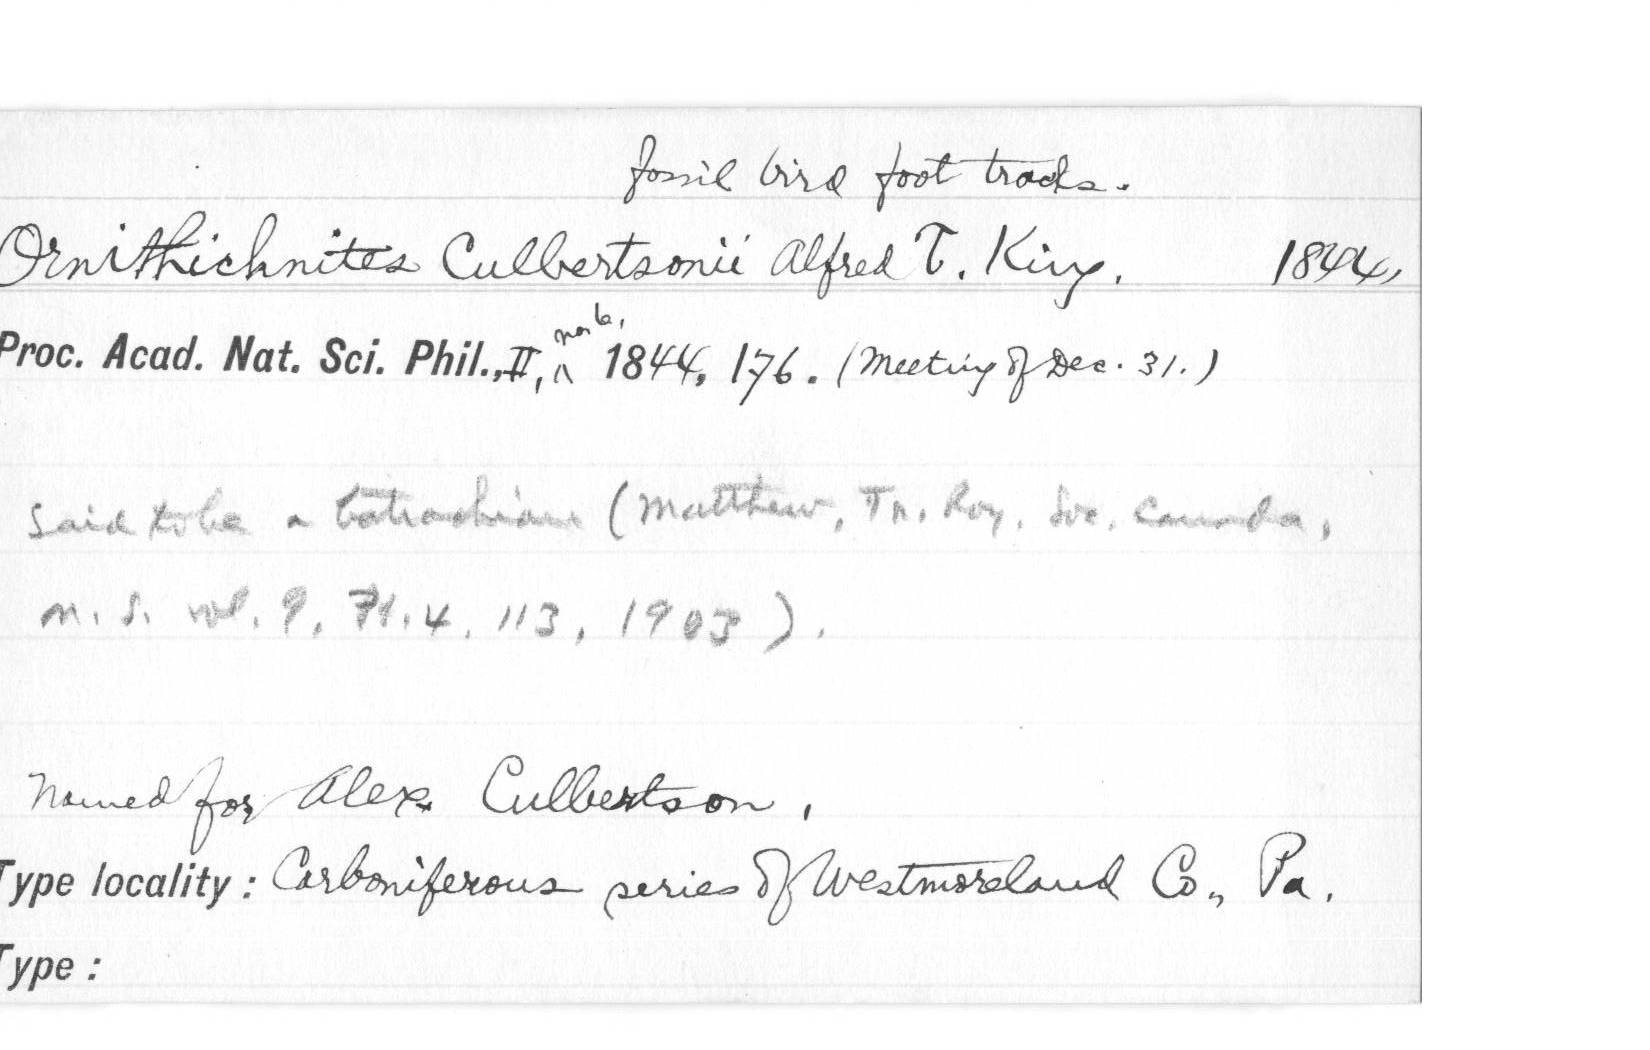 fossil bird foot tracks.
Ornithichnites Culbertsonii Alfred T. King. 1844,
no. 6,
Proc. Acad. Nat. Sci. Phil., II, ^ 1844, 176. (Meeting of Dec. 31.)
Said to be a batrachian (Matthew, Tr. Roy. Soc. Canada,
n. s. vol. 9, Pt. 4, 113, 1903).
Named for Alex. Culbertson.
Type locality: Carboniferous series of Westmoreland Co., Pa.
Type: